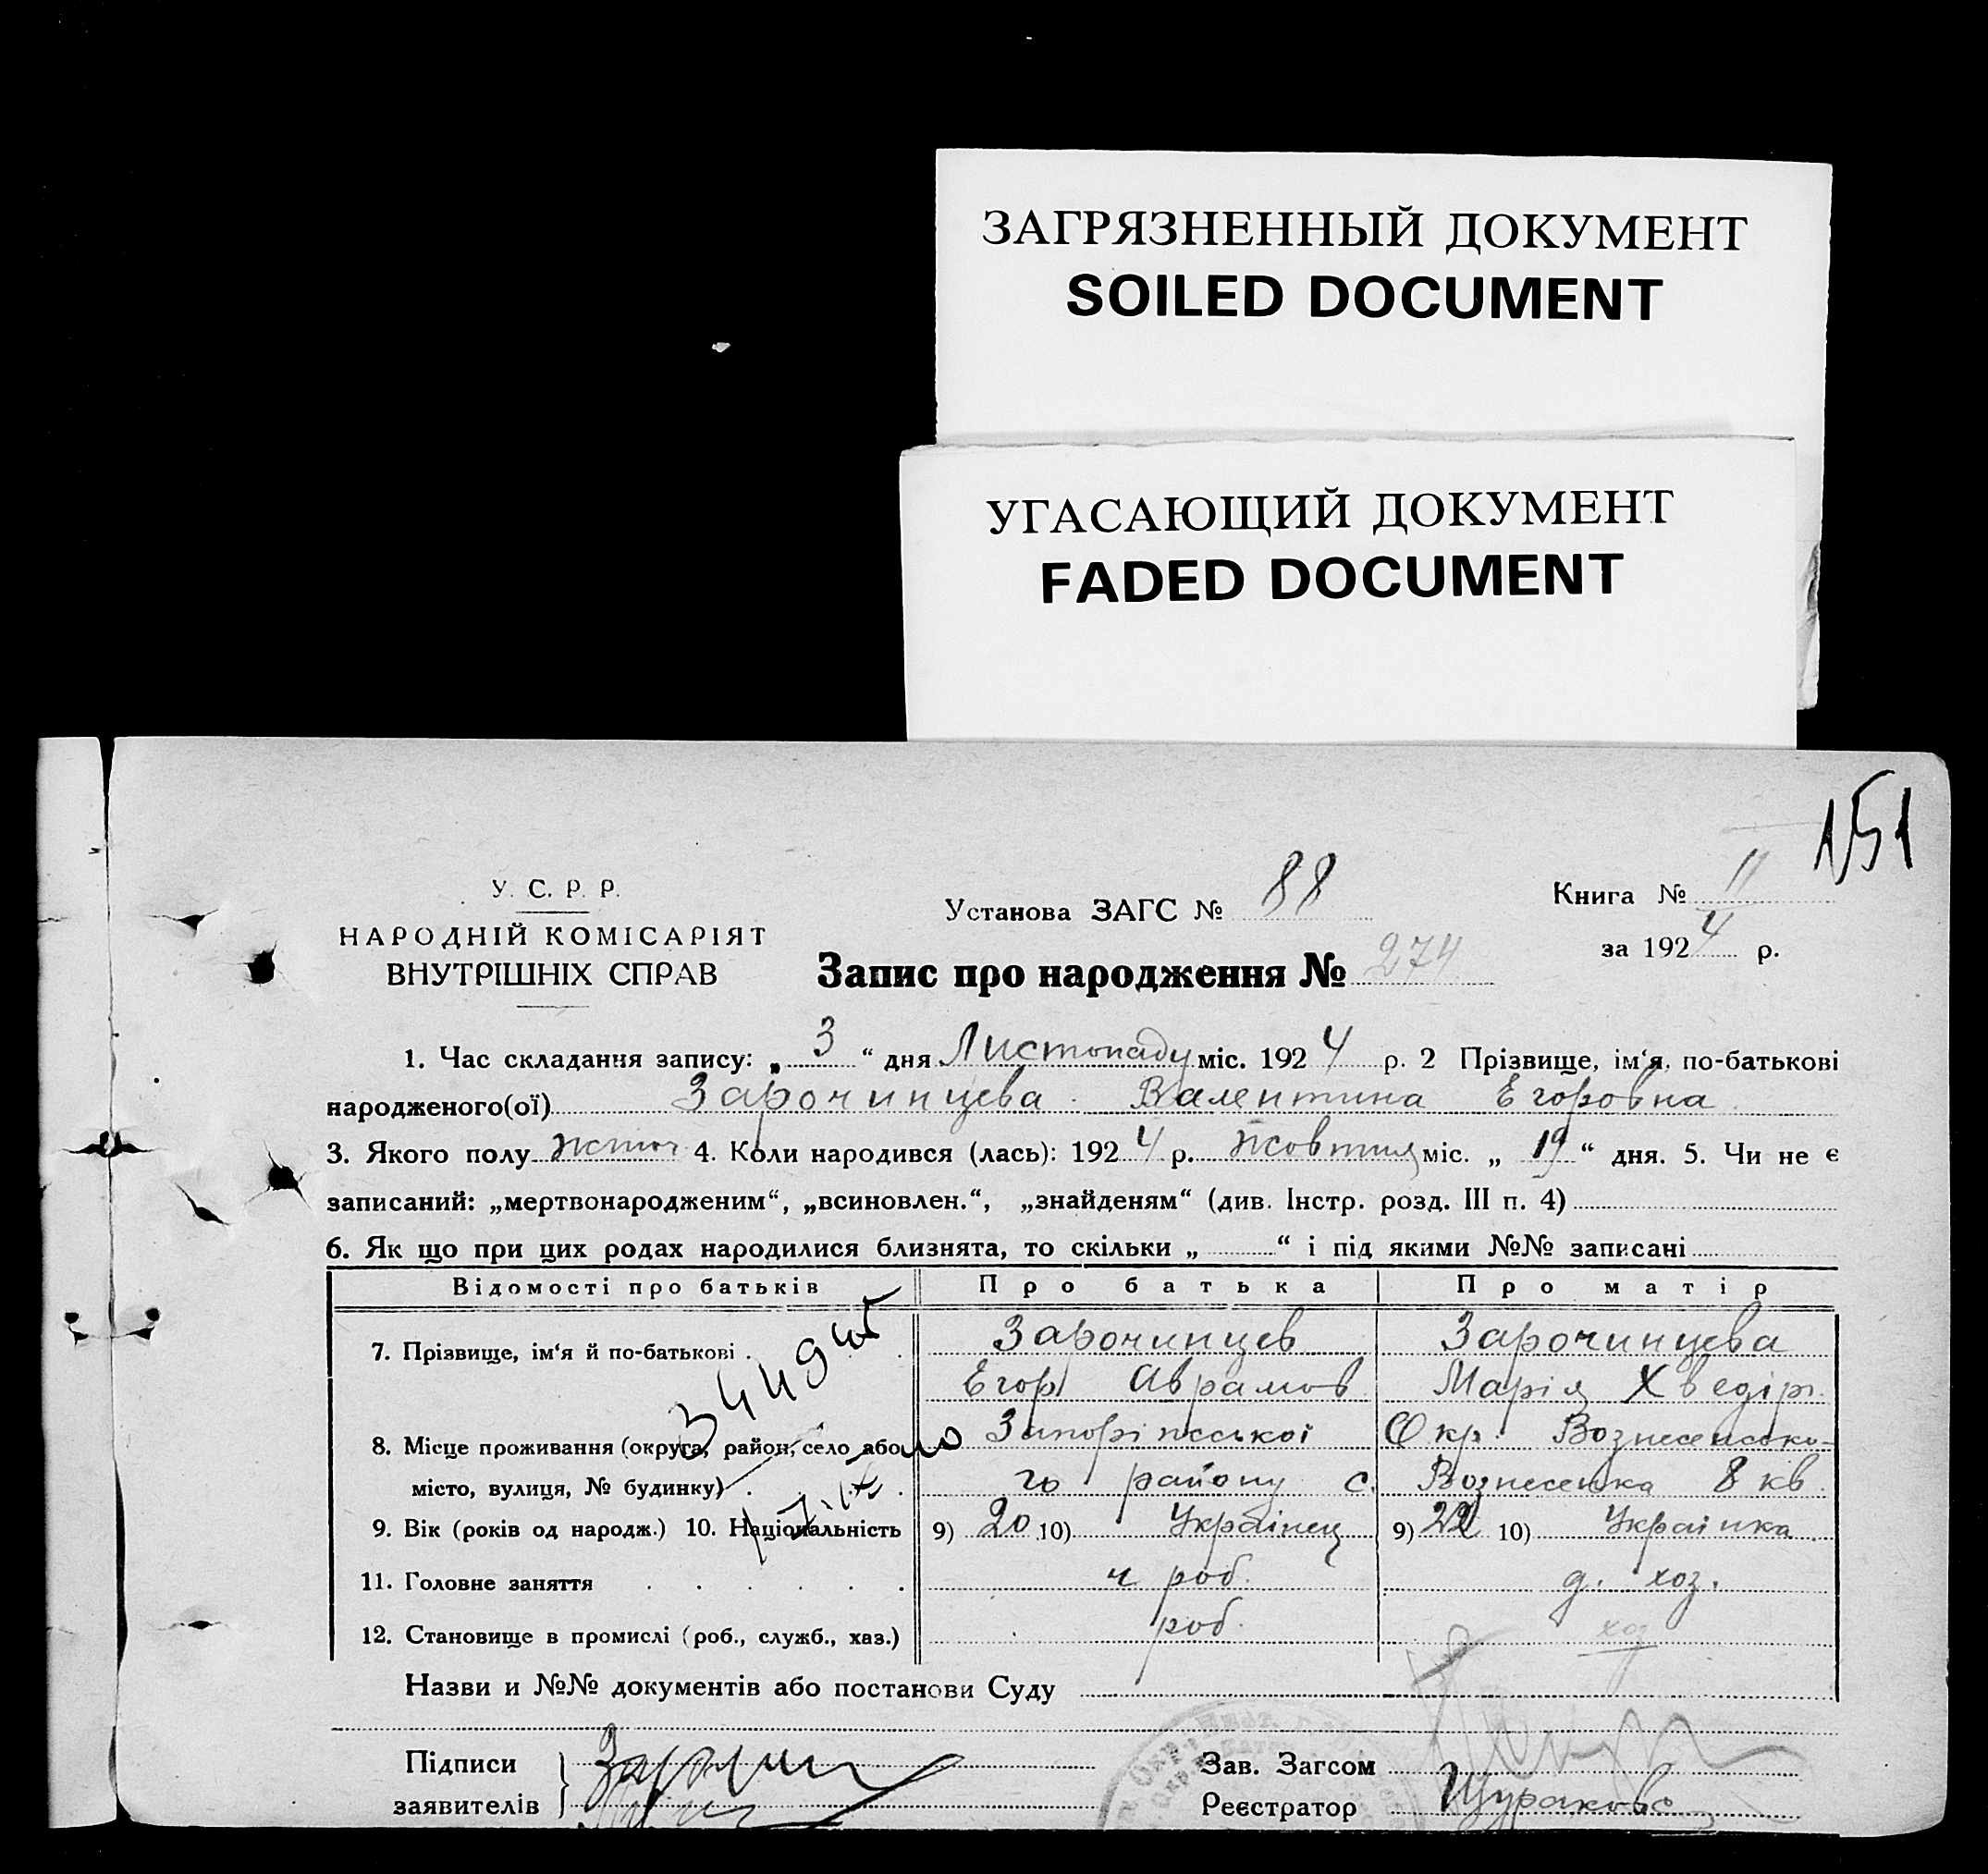 ЗАГРЯЗНЕННЫЙ ДОКУМЕНТ
SOILED DOCUMENT
УГАСАЮЩИЙ ДОКУМЕНТ
FADED DOCUMENT
151
У. С. Р. Р.
НАРОДНІЙ КОМІСАРІЯТ
ВНУТРІШНІХ СПРАВ
Установа ЗАГС № 88
Запис про народження № 274
Книга № 11
за 1924 р.
1. Час складання запису: „ 3 “ дня Листопаду міс. 1924 р. 2 Прізвище, ім‘я, по-батькові
народженого(ої) Зарочинцева Валентина Егоровна
3. Якого полу 4. Коли народився (лась): 1924 р. Жовтня міс. „ 19 “ дня. 5. Чи не є
записаний: „мертвонародженим“, „всиновлен.“, „знайденям“ (див. Інстр. розд. III п. 4)
6. Як що при цих родах народилися близнята, то скільки „ “ і під якими №№ записані
Відомості про батьків Про батька Про матір
7. Прізвище, ім‘я й по-батькові . Зарочинцев Зарочинцева
Егор Аврамов Марія Хведір.
8. Місце проживання (округа, район, село або Запоріжської Окр. Вознесенсько-
місто, вулиця, № будинку) го району с. Вознесенка 8 кв.
9. Вік (років од народж.) 10. Національність 9) 20 10) Українец 9) 22 10) Українка
11. Головне заняття ч роб. д. хоз.
12. Становище в промислі (роб., служб., хаз.) роб. хоз
Назви и №№ документів або постанови Суду
Підписи
заявителів
Зав. Загсом
Реєстратор